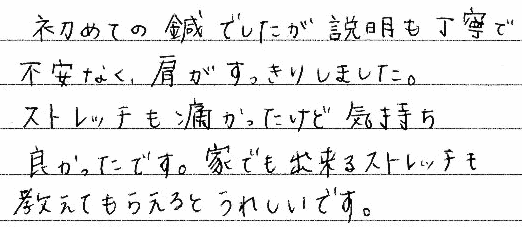 初めての鍼でしたが説明も丁寧で
不安なく、肩がすっきりしました。
ストレッチも痛かったけど気持ち
良かったです。家でも出来るストレッチも
教えてもらえるとうれしいです。